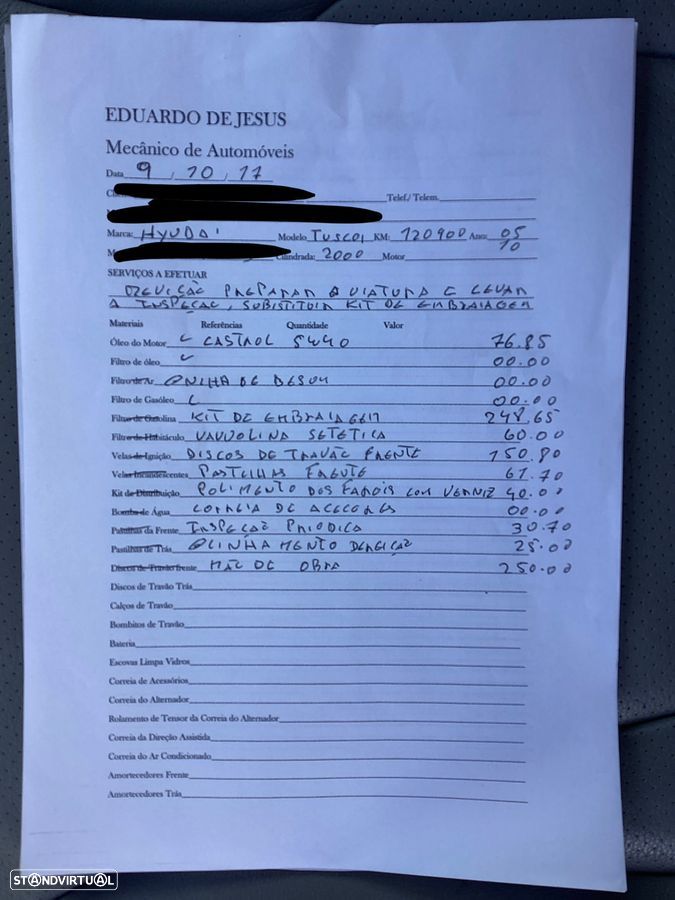 EDUARDO DE JESUS
Mecânico de Automóveis
Data 9, 10, 17
Telef./ Telem.
Marca: HYUDAI Modelo TUSCOI KM: 120900 Ano: 05
10
Cilindrada: 2000 Motor
SERVIÇOS A EFETUAR
REVIÇÃO PREPARAR A VIATURA E LEVAR
A INSPEÇAC, SUBSTITUIR KIT DE EMBRAIAGEM
Materiais Referências Quantidade Valor
Óleo do Motor CASTROL 5W40 76.85
Filtro de óleo 00.00
Filtro de Ar 00.00
Filtro de Gasóleo 00.00
Filtro de Gasolina KIT DE EMBRAIAGEM 248.65
Filtro de Habitáculo VAUVOLINA SETETICA 60.00
Velas de Ignição DISCOS DE TRAVÃO FRENTE 150.80
Velas Incandescentes PASTILHAS FRENTE 61.70
Kit de Distribuição POLIMENTO DOS FAROIS COM VERNIZ 40.00
Bomba de Água CORREIA DE 00.00
Patilhas da Frente INSPEÇAO PRIODICA 30.70
Pastilhas de Trás ALINHAMENTO DEREIÇAO 25.00
Discos de Travão frente MÃO DE OBRA 250.00
Discos de Travão Trás
Calços de Travão
Bombitos de Travão
Bateria
Escovas Limpa Vidros
Correia de Acessórios
Correia do Alternador
Rolamento de Tensor da Correia do Alternador
Correia da Direção Assistida
Correia do Ar Condicionado
Amortecedores Frente
Amortecedores Trás
STANDVIRTUAL